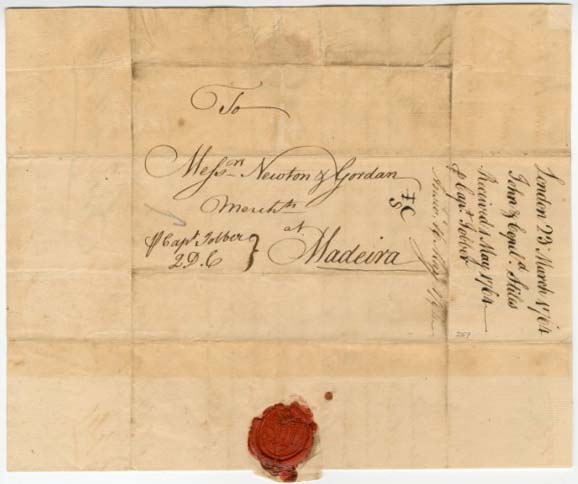 To
Messrs Newton & Gordan
Merchts
at
Madeira
⅌ Capt Jobber
2 D. C
London 23 March 1764
John & Copeld Stiles
Received 1 May 1764
⅌ Capt Jobber
257